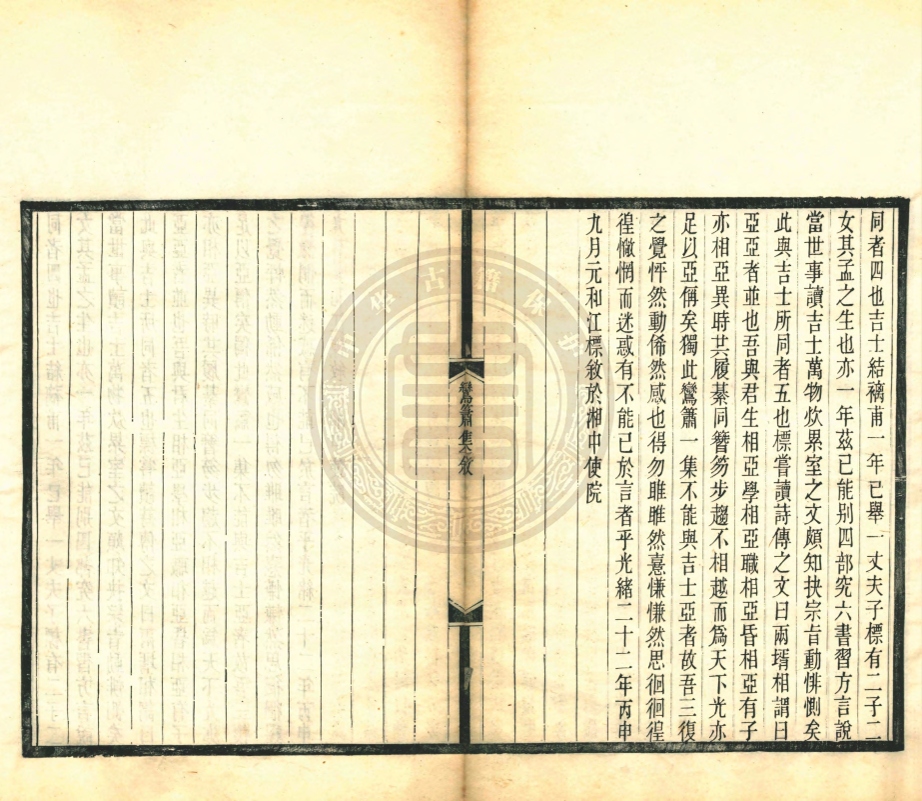 同者四也吉士結褵甫一年已舉一丈夫子標有二子二
女其孟之生也亦一年茲已能别四部究六書習方言說
當世事讀吉士萬物炊累室之文頗知抉宗旨動悱惻矣
此與吉士所同者五也標嘗讀詩傳之文曰兩壻相謂曰
亞亞者並也吾與君生相亞學相亞職相亞昏相亞有子
亦相亞異時共履綦同簪笏步趨不相越而爲天下光亦
足以亞偁矣獨此鸞簫一集不能與吉士亞者故吾三復
之覺怦然動俙然感也得勿雎雎然憙慊慊然思徊徊徨
徨憿惘而迷惑有不能已於言者乎光緒二十二年丙申
九月元和江標敘於湘中使院
鸞簫集敘